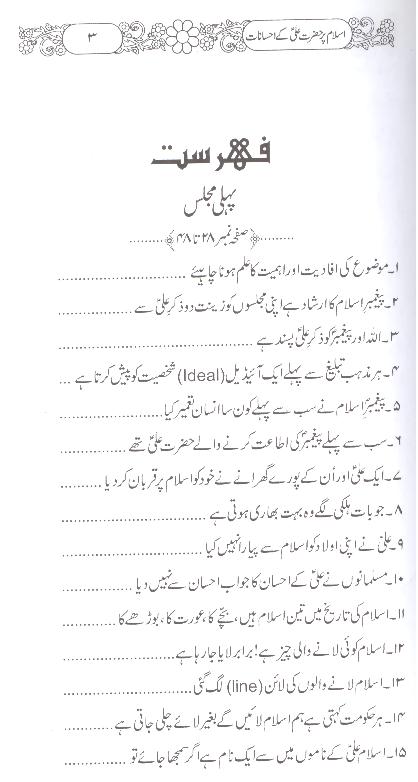 اسلام پر حضرت علیؑ کے احسانات
۳
فہرست
پہلی مجلس
﴿صفحہ نمبر ۲۸ تا ۴۸﴾
۱۔ موضوع کی افادیت اور اہمیت کا علم ہونا چاہیئے
۲۔ پیغمبرِ اسلام کا ارشاد ہے اپنی مجلسوں کو زینت دو ذکرِ علیؑ سے
۳۔ اللہ اور پیغمبرؐ کو ذکرِ علیؑ پسند ہے
۴۔ ہر مذہب تبلیغ سے پہلے ایک آئیڈیل (Ideal) شخصیت کو پیش کرتا ہے
۵۔ پیغمبرِ اسلام نے سب سے پہلے کون سا انسان تعمیر کیا
۶۔ سب سے پہلے پیغمبرؐ کی اطاعت کرنے والے حضرت علیؑ تھے
۷۔ ایک علیؑ اور اُن کے پورے گھرانے نے خود کو اسلام پر قربان کر دیا
۸۔ جو بات ہلکی لگے وہ بہت بھاری ہوتی ہے
۹۔ علیؑ نے اپنی اولاد کو اسلام سے پیارا نہیں کیا
۱۰۔ مسلمانوں نے علیؑ کے احسان کا جواب احسان سے نہیں دیا
۱۱۔ اسلام کی تاریخ میں تین اسلام ہیں، بچّے کا، عورت کا، بوڑھے کا
۱۲۔ اسلام کوئی لانے والی چیز ہے! برابر لایا جا رہا ہے
۱۳۔ اسلام لانے والوں کی لائن (line) لگ گئی
۱۴۔ ہر حکومت کہتی ہے ہم اسلام لائیں گے بغیر لائے چلی جاتی ہے
۱۵۔ اسلام علیؑ کے ناموں میں سے ایک نام ہے اگر سمجھا جائے تو